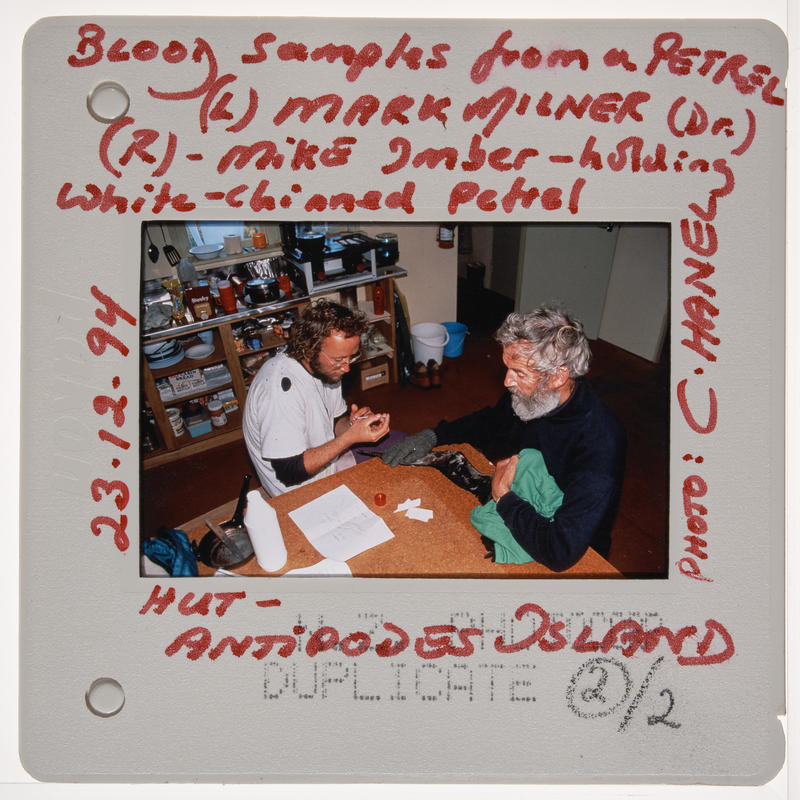 Blood Samples from a PETREL
(L) MARK MILNER (Dr.)
(R) - MIKE Imber - holding
White-chinned Petrel
23.12.94
PHOTO: C. HANEL
HUT -
ANTIPODES ISLAND
DUPLICATE
2/2